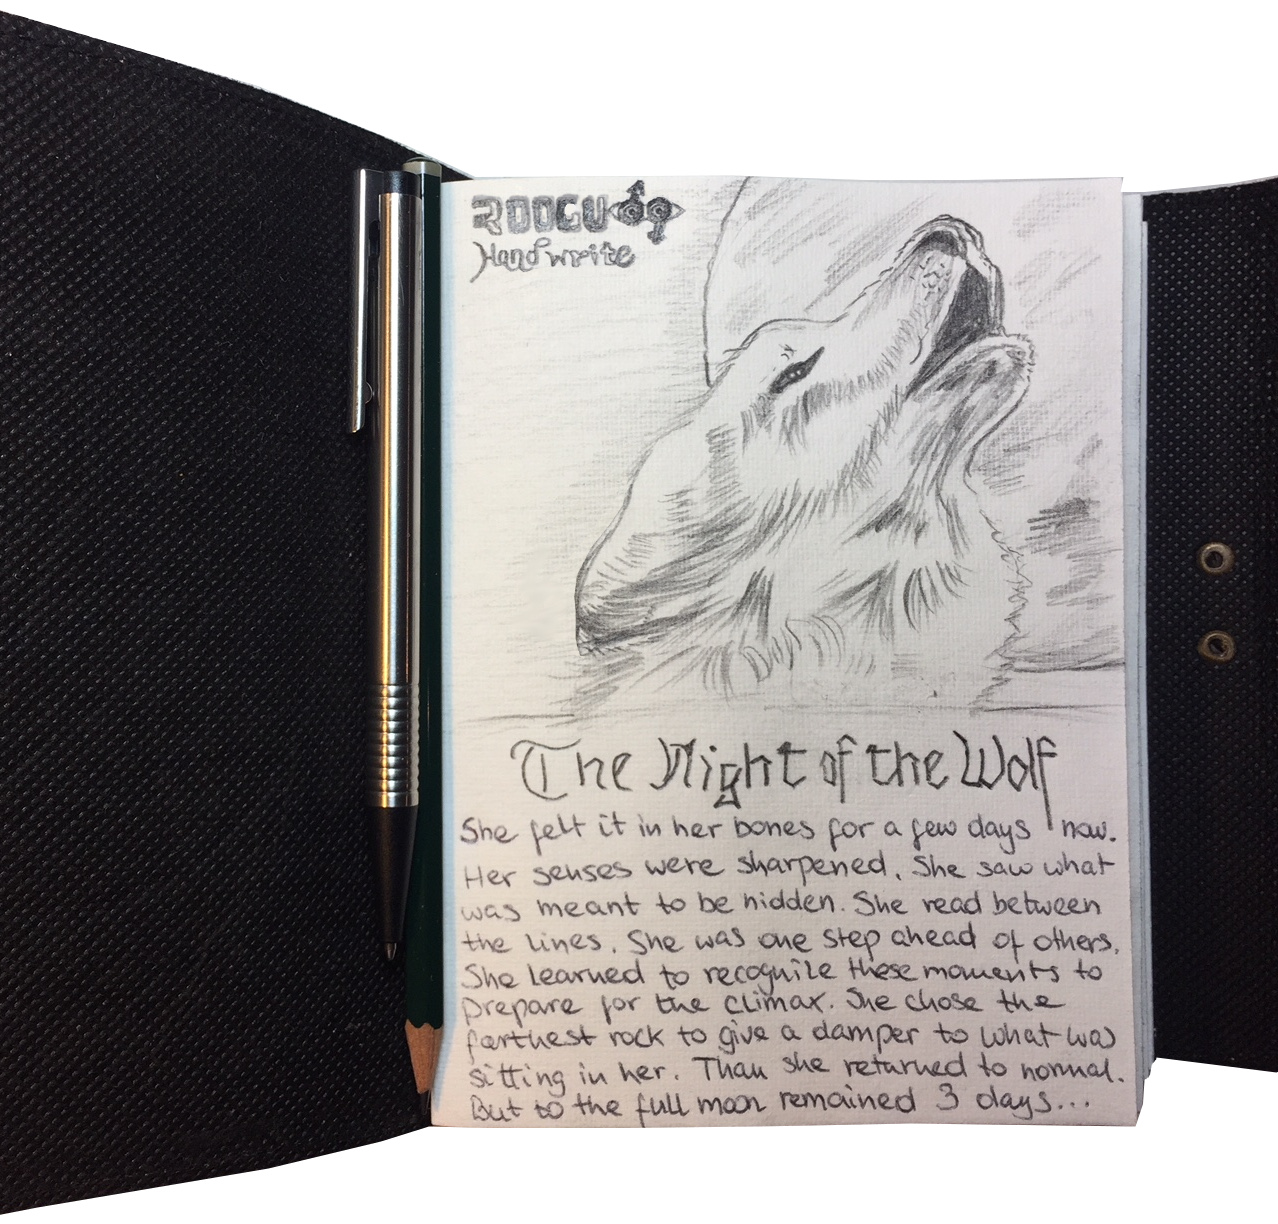 ROOGU
Handwrite
The Night of the Wolf
She felt it in her bones for a few days now.
Her senses were sharpened. She saw what
was meant to be hidden. She read between
the lines. She was one step ahead of others.
She learned to recognize these moments to
prepare for the climax. She chose the
farthest rock to give a damper to what was
sitting in her. Than she returned to normal.
But to the full moon remained 3 days...